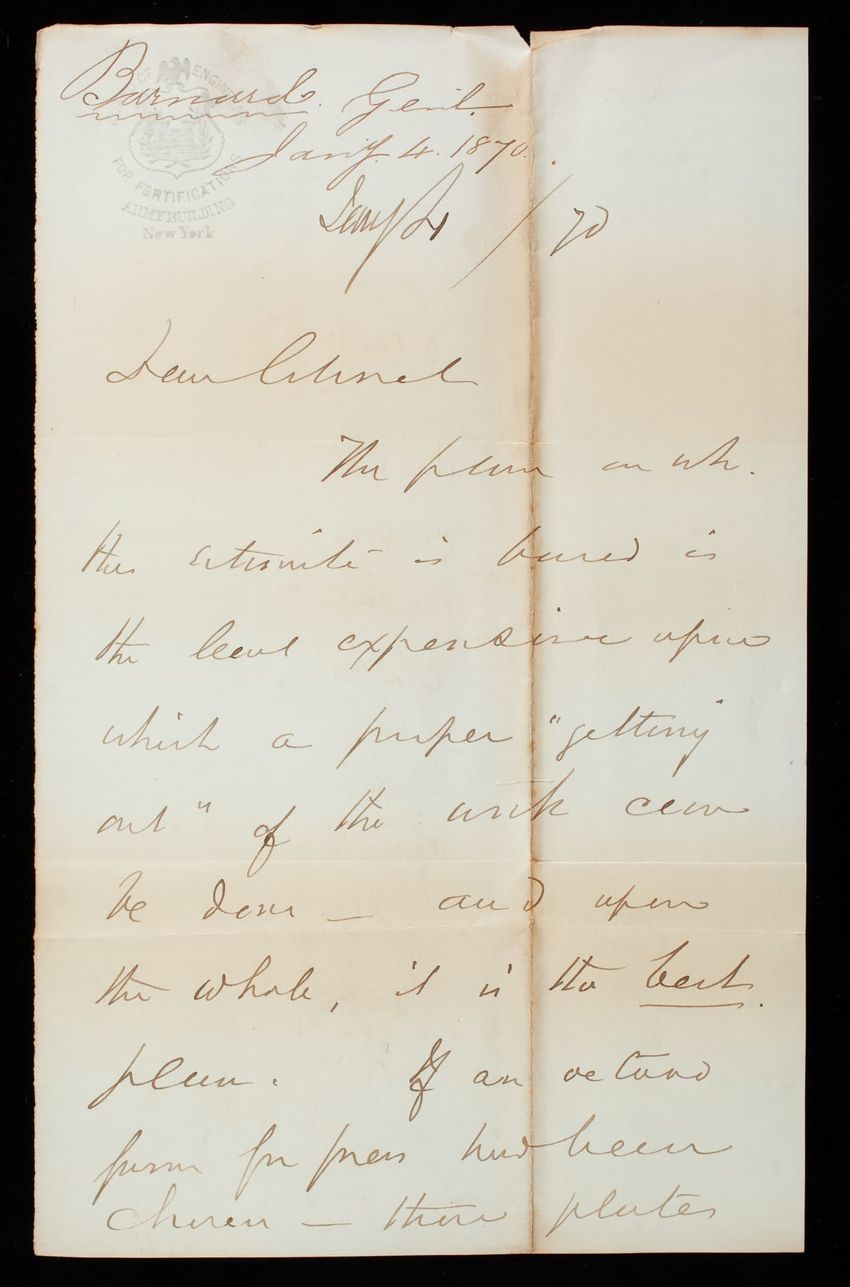 Barnard. Genl.
Jany. 4. 1870.
OF ENGINEERS
FOR FORTIFICATIONS
ARMY BUILDING
New York
Jany 4 / 70
Dear Colonel
The plan on wh.
this estimate is based is
the least expensive upon
which a proper "getting
out" of the work can
be done — and upon
the whole, it is the best
plan. If an octavo
form for press had been
chosen — these plates